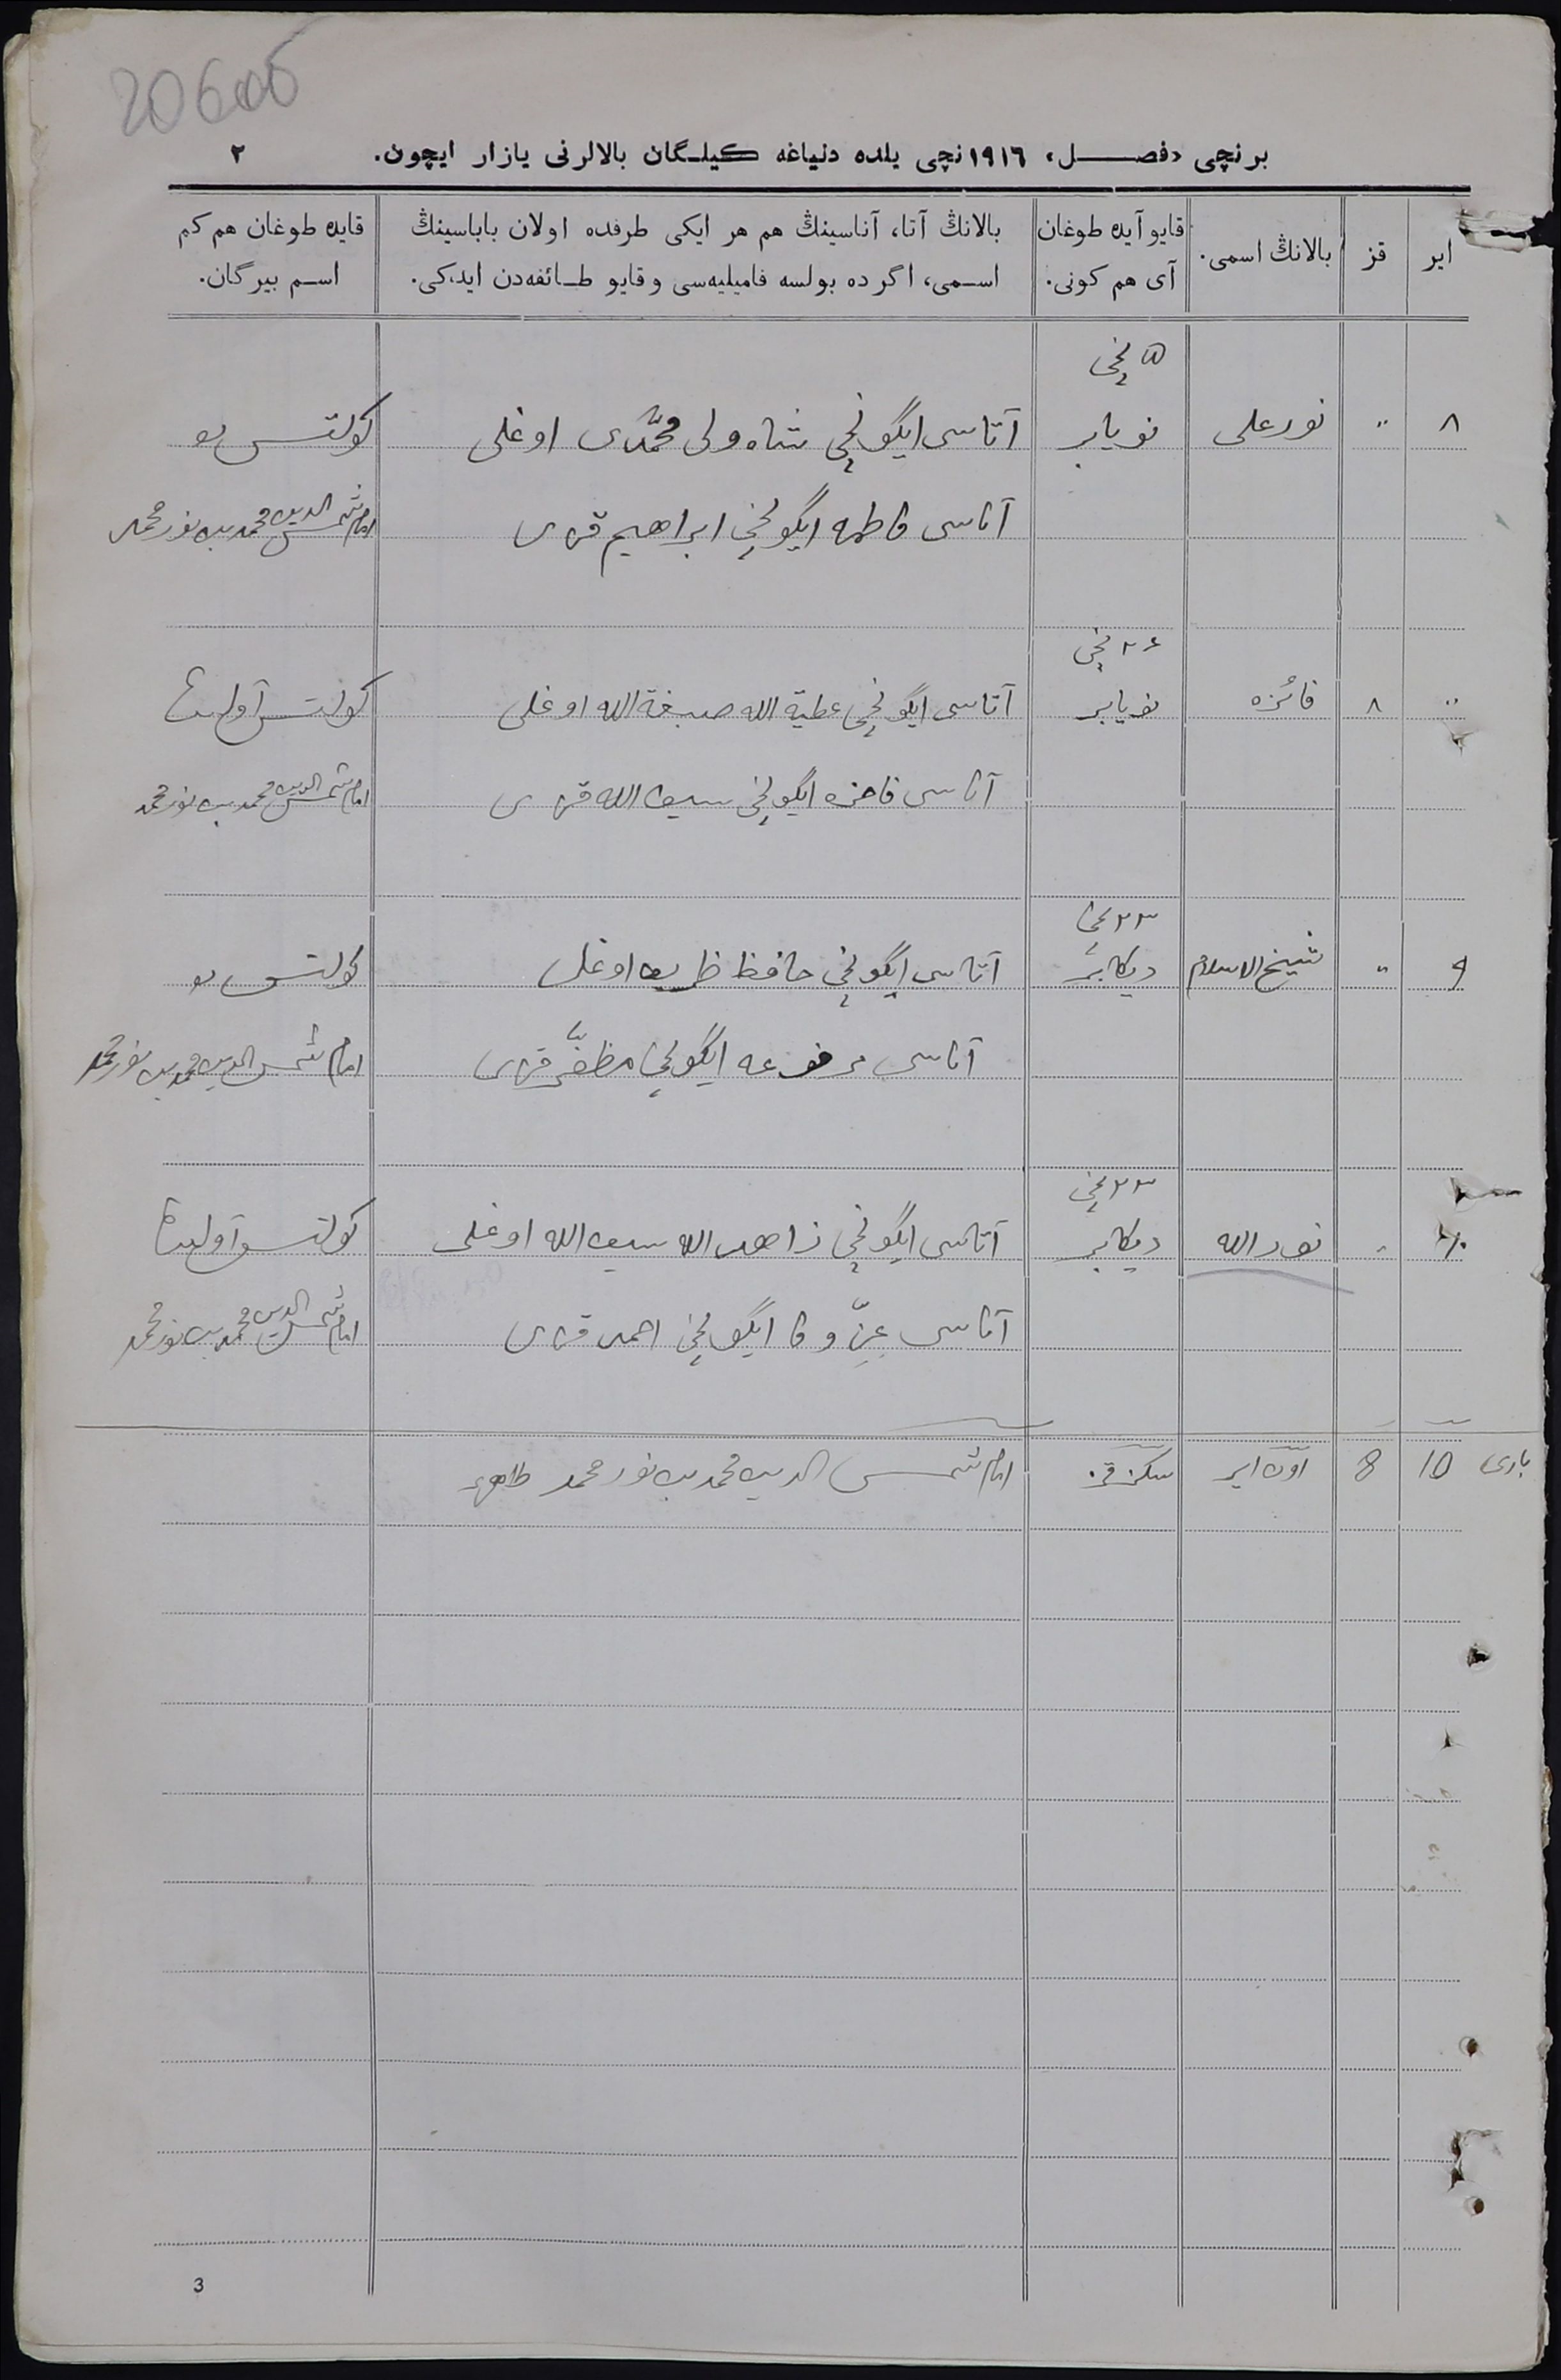 20606
برنچی «فصل» ١٩١٦نچی یلده دنیاغه کیلگان بالالرنی یازار ایچون. ٢
ایر قز بالانڭ اسمی. قایو آیده طوغان آی هم کونی. بالانڭ آتا، آناسینڭ هم هر ایکی طرفده اولان باباسینڭ اسمی، اگر ده بولسه فامیلیه‌سی و قایو طائفه‌دن ایدکی. قایده طوغان هم کم اسم بیرگان.
۵ نچی
٨ " نورعلی نویابر آتاسی ایگونچی شاه ولی محمّدی اوغلی
آناسی فاطمه ایگونچی ابراهیم قزی امام شمس الدین محمد بن نورمحمد
٢٦ نچی
" ٨ فائزه نویابر آتاسی ایگونچی عطیة الله صبغة الله اوغلی
آناسی ایگونچی سیف الله قزی امام شمس الدین محمد بن نورمحمد
٢٣ نچی
٩ " شیخ الاسلام دیکابر آتاسی ایگونچی حافظ ظریف اوغلی
آناسی مرفوعه ایگونچی مظفّر قزی امام شمس الدین محمد بن نورمحمد
٢٣ نچی
١٠ " نورالله دیکابر آتاسی ایگونچی زاهدالله سیف الله اوغلی
آناسی ایگونچی احمد قزی امام شمس الدین محمد بن نورمحمد
باری 10 8 اون ایر سکز قز امام شمس الدین محمد بن نورمحمد
3